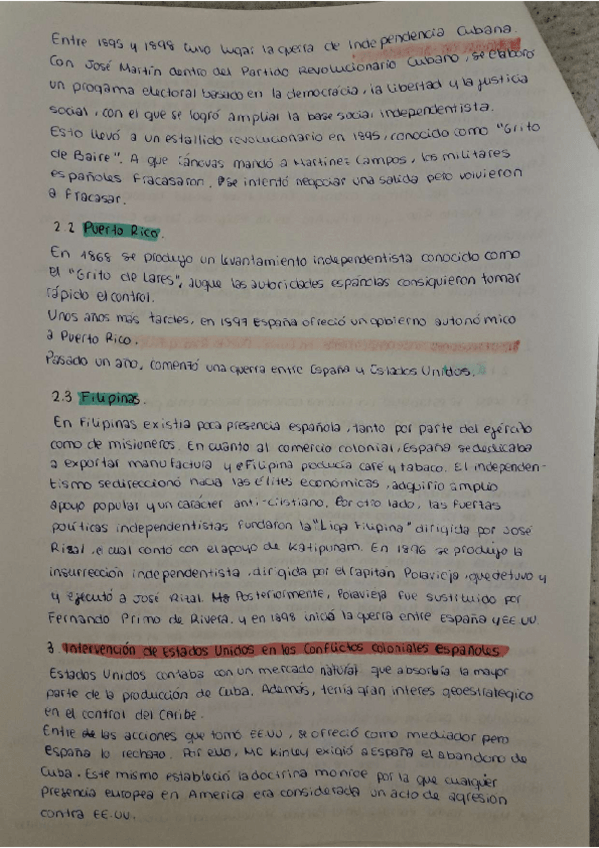 Entre 1895 y 1898 tuvo lugar la guerra de Independencia Cubana.
Con José Martín dentro del Partido Revolucionario Cubano, se elaboró
un progama electoral basado en la democracia, la libertad y la justicia
social, con el que se logró ampliar la base social independentista.
Esto llevó a un estallido revolucionario en 1895, conocido como "Grito
de Baire". A que Cánovas mandó a Martínez Campos, los militares
españoles fracasaron. Se intentó negociar una salida pero volvieron
a fracasar.
2.2 Puerto Rico.
En 1868 se produjo un levantamiento independentista conocido como
el "Grito de Lares", auque las autoridades españolas consiguieron tomar
rápido el control.
Unos años más tardes, en 1897 España ofreció un gobierno autonómico
a Puerto Rico.
Pasado un año, comenzó una guerra entre España y Estados Unidos.
2.3 Filipinas.
En Filipinas existía poca presencia española, tanto por parte del ejército
como de misioneros. En cuanto al comercio colonial, España se dedicaba
a exportar manufactura y Filipina producía café y tabaco. El independen-
tismo se direccionó hacia las élites económicas, adquirío amplio
apoyo popular y un carácter anti-cristiano. Por otro lado, las fuertas
políticas independentistas fundaron la "Liga Filipina" dirigida por José
Rizal, el cual contó con el apoyo de Katipunam. En 1896 se produjo la
insurrección independentista, dirigida por el capitán Polavieja, que detuvo y
y ejecutó a José Rizal. Posteriormente, Polavieja fue sustituido por
Fernando Primo de Rivera. y en 1898 inició la guerra entre España y EE.UU.
3. Intervención de Estados Unidos en los conflictos coloniales españoles
Estados Unidos contaba con un mercado natural que absorbía la mayor
parte de la producción de Cuba. Además, tenía gran interes geoestratégico
en el control del Caribe.
Entre las acciones que tomó EE.UU, se ofreció como mediador pero
España lo rechazó. Por ello, Mc Kinley exigió a España el abandono de
Cuba. Este mismo estableció la doctrina monroe por la que cualquier
presencia europea en America era considerada un acto de agresión
contra EE.UU.